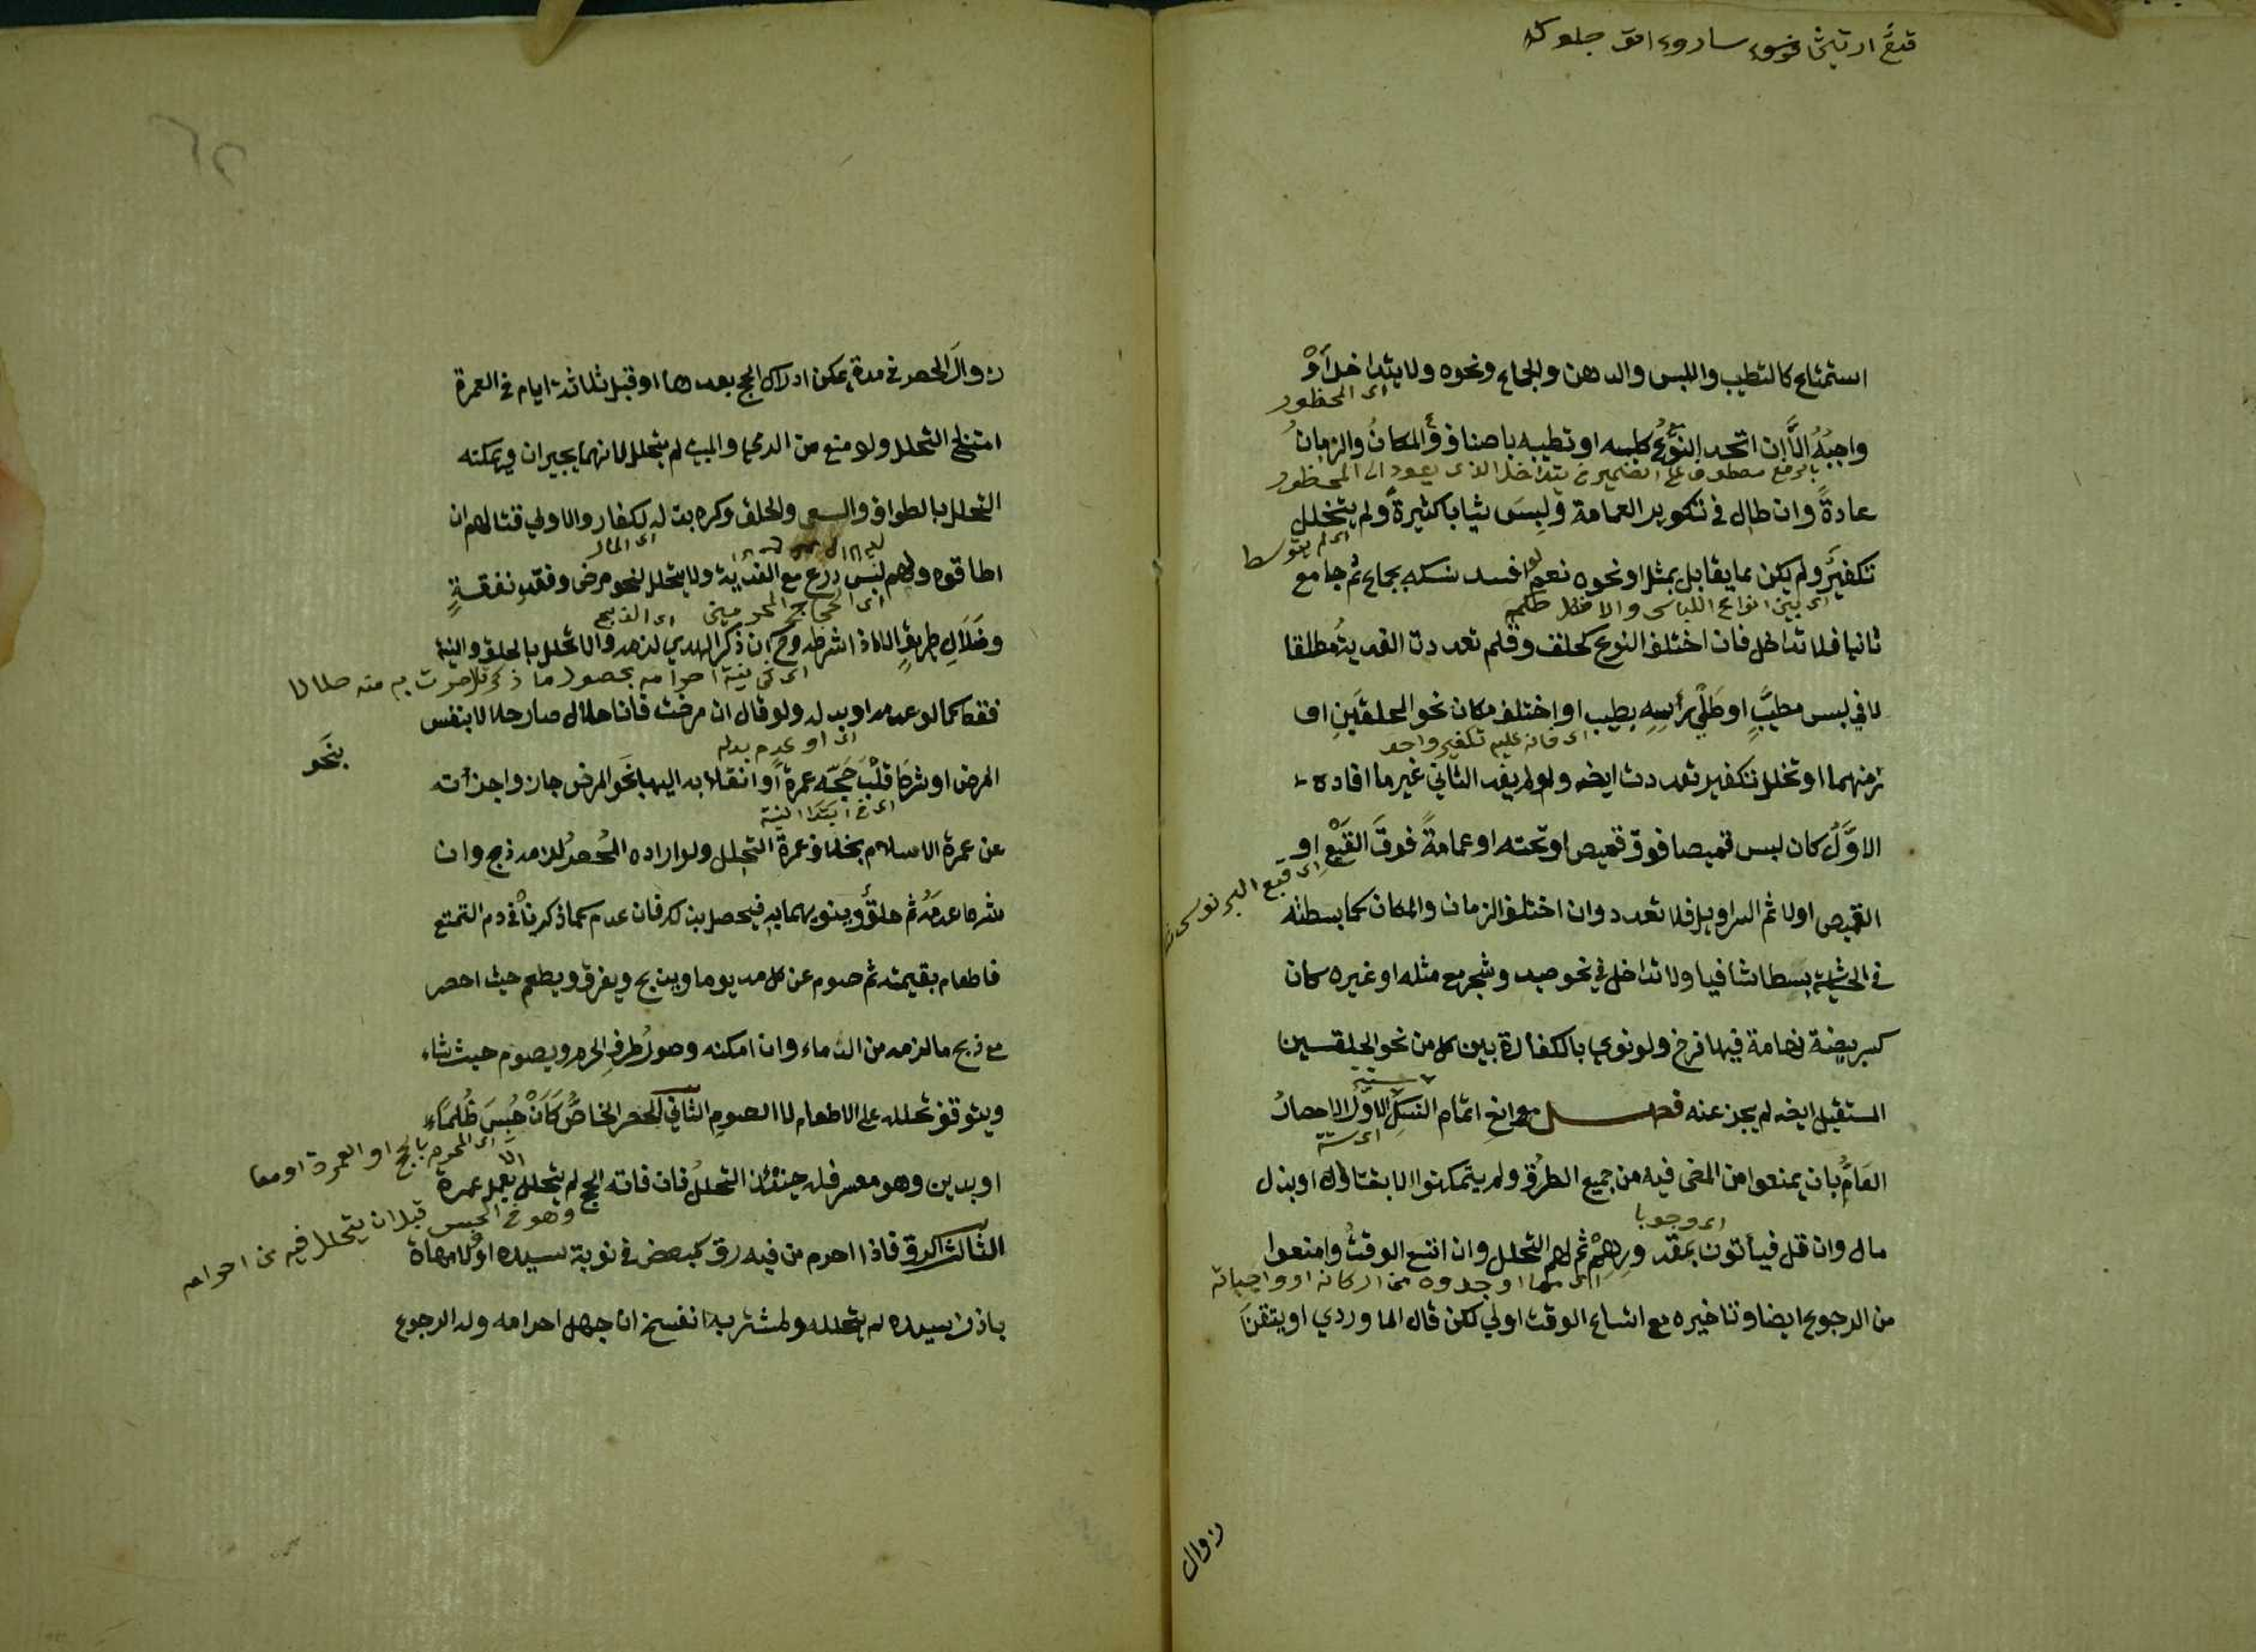 استمتاع كالتطيب واللبس والدهن والجماع ونحوه ولا يتداخل أو
اى المحظور
واجبه الا إن اتحد النوع كلبسه او تطيبه باصناف والمكان والزمان
بالرفع معطوف على الضمير في يتداخل الذى يعود الى المحظور
عادةً وان طال في تكوير العمامة ولبس ثيابا كثيرة ولم يتخلل
اى لم يتوسط
تكفير ولم يكن مما يقابل بمثل او نحوه نعم لو افسد نسكه بجماع ثم جامع
اى بين انواع اللباس
ثانيا فلا تداخل فان اختلف النوع كحلف وقلم تعددت الفدية مطلقا
لا في لبس مطيب او طلي رأسه بطيب او اختلف مكان نحو الحلقين او
اى فانه عليه تكفير واحد
زمنهما او تخلل تكفير تعددت ايضه ولو لم يفد الثاني غير ما افاده
الاول كان لبس قميصا فوق قميص او تحته او عمامة فوق القبع او
القميص اولا ثم السراويل فلا تعدد وان اختلف الزمان والمكان كما بسطته
في الحاشية بسطا شافيا ولا تداخل في نحو صيد وشجر مع مثله او غيره كان
كسر بيضة نعامة فيها فرخ ولو نوى بالكفارة بين كل من نحو الحلقسين
المستقبل ايضه لم يجز عنه فصل موانع اتمام النسك الاول الاحصار
اى ستة
العام بان يمنعوا من المضى فيه من جميع الطرق ولم يتمكنوا الا بقتال او بذل
اى وجوبا
مال وان قل فيأتون بمقدورهم ثم لهم التحلل وان اتسع الوقت وامنعوا
اى مما اوجدوه من اركانه او واجباته
من الرجوع ايضا وتاخيره مع اتساع الوقت اولى لكن قال الماوردي او يتقن
زوال
زوال الحصر في مدة يمكن ادراك الحج بعدها او قبل ثلاثة ايام في العمرة
امتنع التحلل ولو منع من الرمي والمبيت لم يتحلل لانهما يجبران ويمكنه
التحلل بالطواف والسعي والحلق وكره بذله لكفار والاولى قتالهم ان
اى المال
اطاقوه ولهم لبس درع مع الفدية ولا يتحلل لنحو مرض وفقد نفقة
اى الحجاج المحرمين
وضلال طريق الا اذا شرطه وح ان ذكر الهدي لزمه والا تحلل بالحلق والنية
فقط كما لو عدمه او بدله ولو قال ان مرضت فأنا حلال صار حلالا بنفس
اى او عدم بدله
المرض او شرط قلب حجه عمرة أو انقلابه اليها بنحو المرض جاز واجزأته
بنحو
اى في ابتدا النية
عن عمرة الاسلام بخلاف عمرة التحلل ولو اراده المحصر لزمه ذبح وان
شرط عدمه ثم حلق وينويهما به فيحصل بذلك فان عدم كما ذكرنا في دم التمتع
فاطعام بقيمته ثم صوم عن كل مد يوما ويذبح ويفرق ويطعم حيث احصر
مع ذبح ما لزمه من الدماء وان امكنه وصول طرف الحرم ويصوم حيث شاء
ويتوقف تحلله على الاطعام لا الصوم الثاني الحصر الخاص كأن حبس ظلماً
اى المحرم بالحج او العمرة او معا
او بدين وهو معسر فله حينئذ التحلل فان فاته الحج لم يتحلل الا بعمل عمرة
وهو في الحبس قبل ان يتحلل فيه من احرامه
الثالث الرق فاذا احرم من فيه رق كمبعض في نوبة سيده او لا مهاياة
باذن سيده لم يحلله ولمشتريه الفسخ ان جهل احرامه وله الرجوع